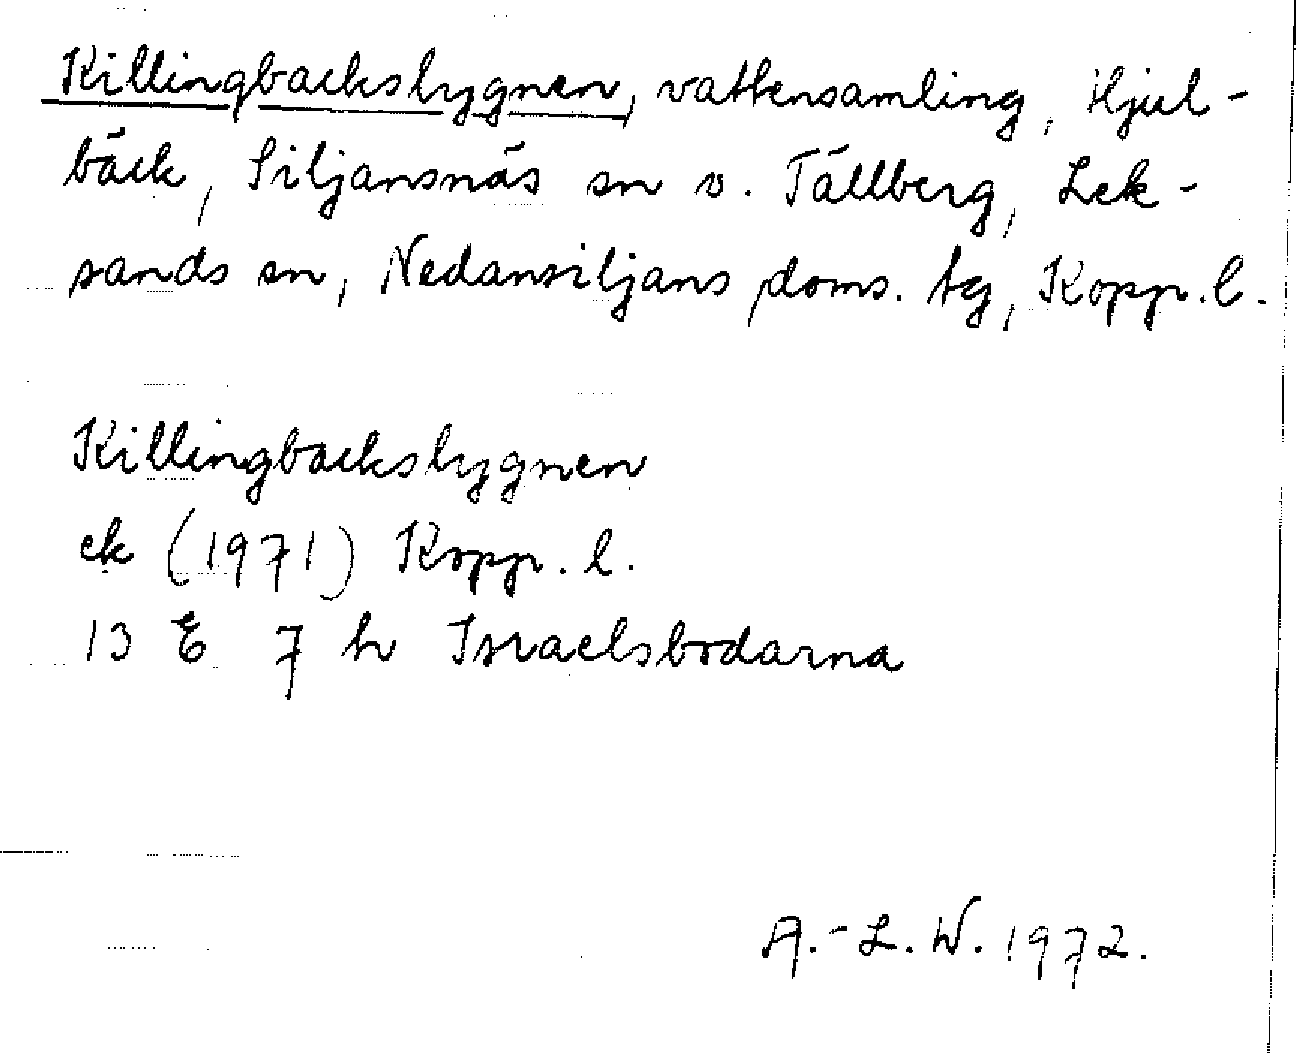 Killingbackshygnen, vattensamling, Hjul-
bäck, Siljansnäs sn o. Tällberg, Lek-
sands sn, Nedansiljans doms. tg, Kopp. l.
Killingbackshygnen
ek (1971) Kopp. l.
13 E 7 h Israelsbodarna
A.-L. W. 1972.